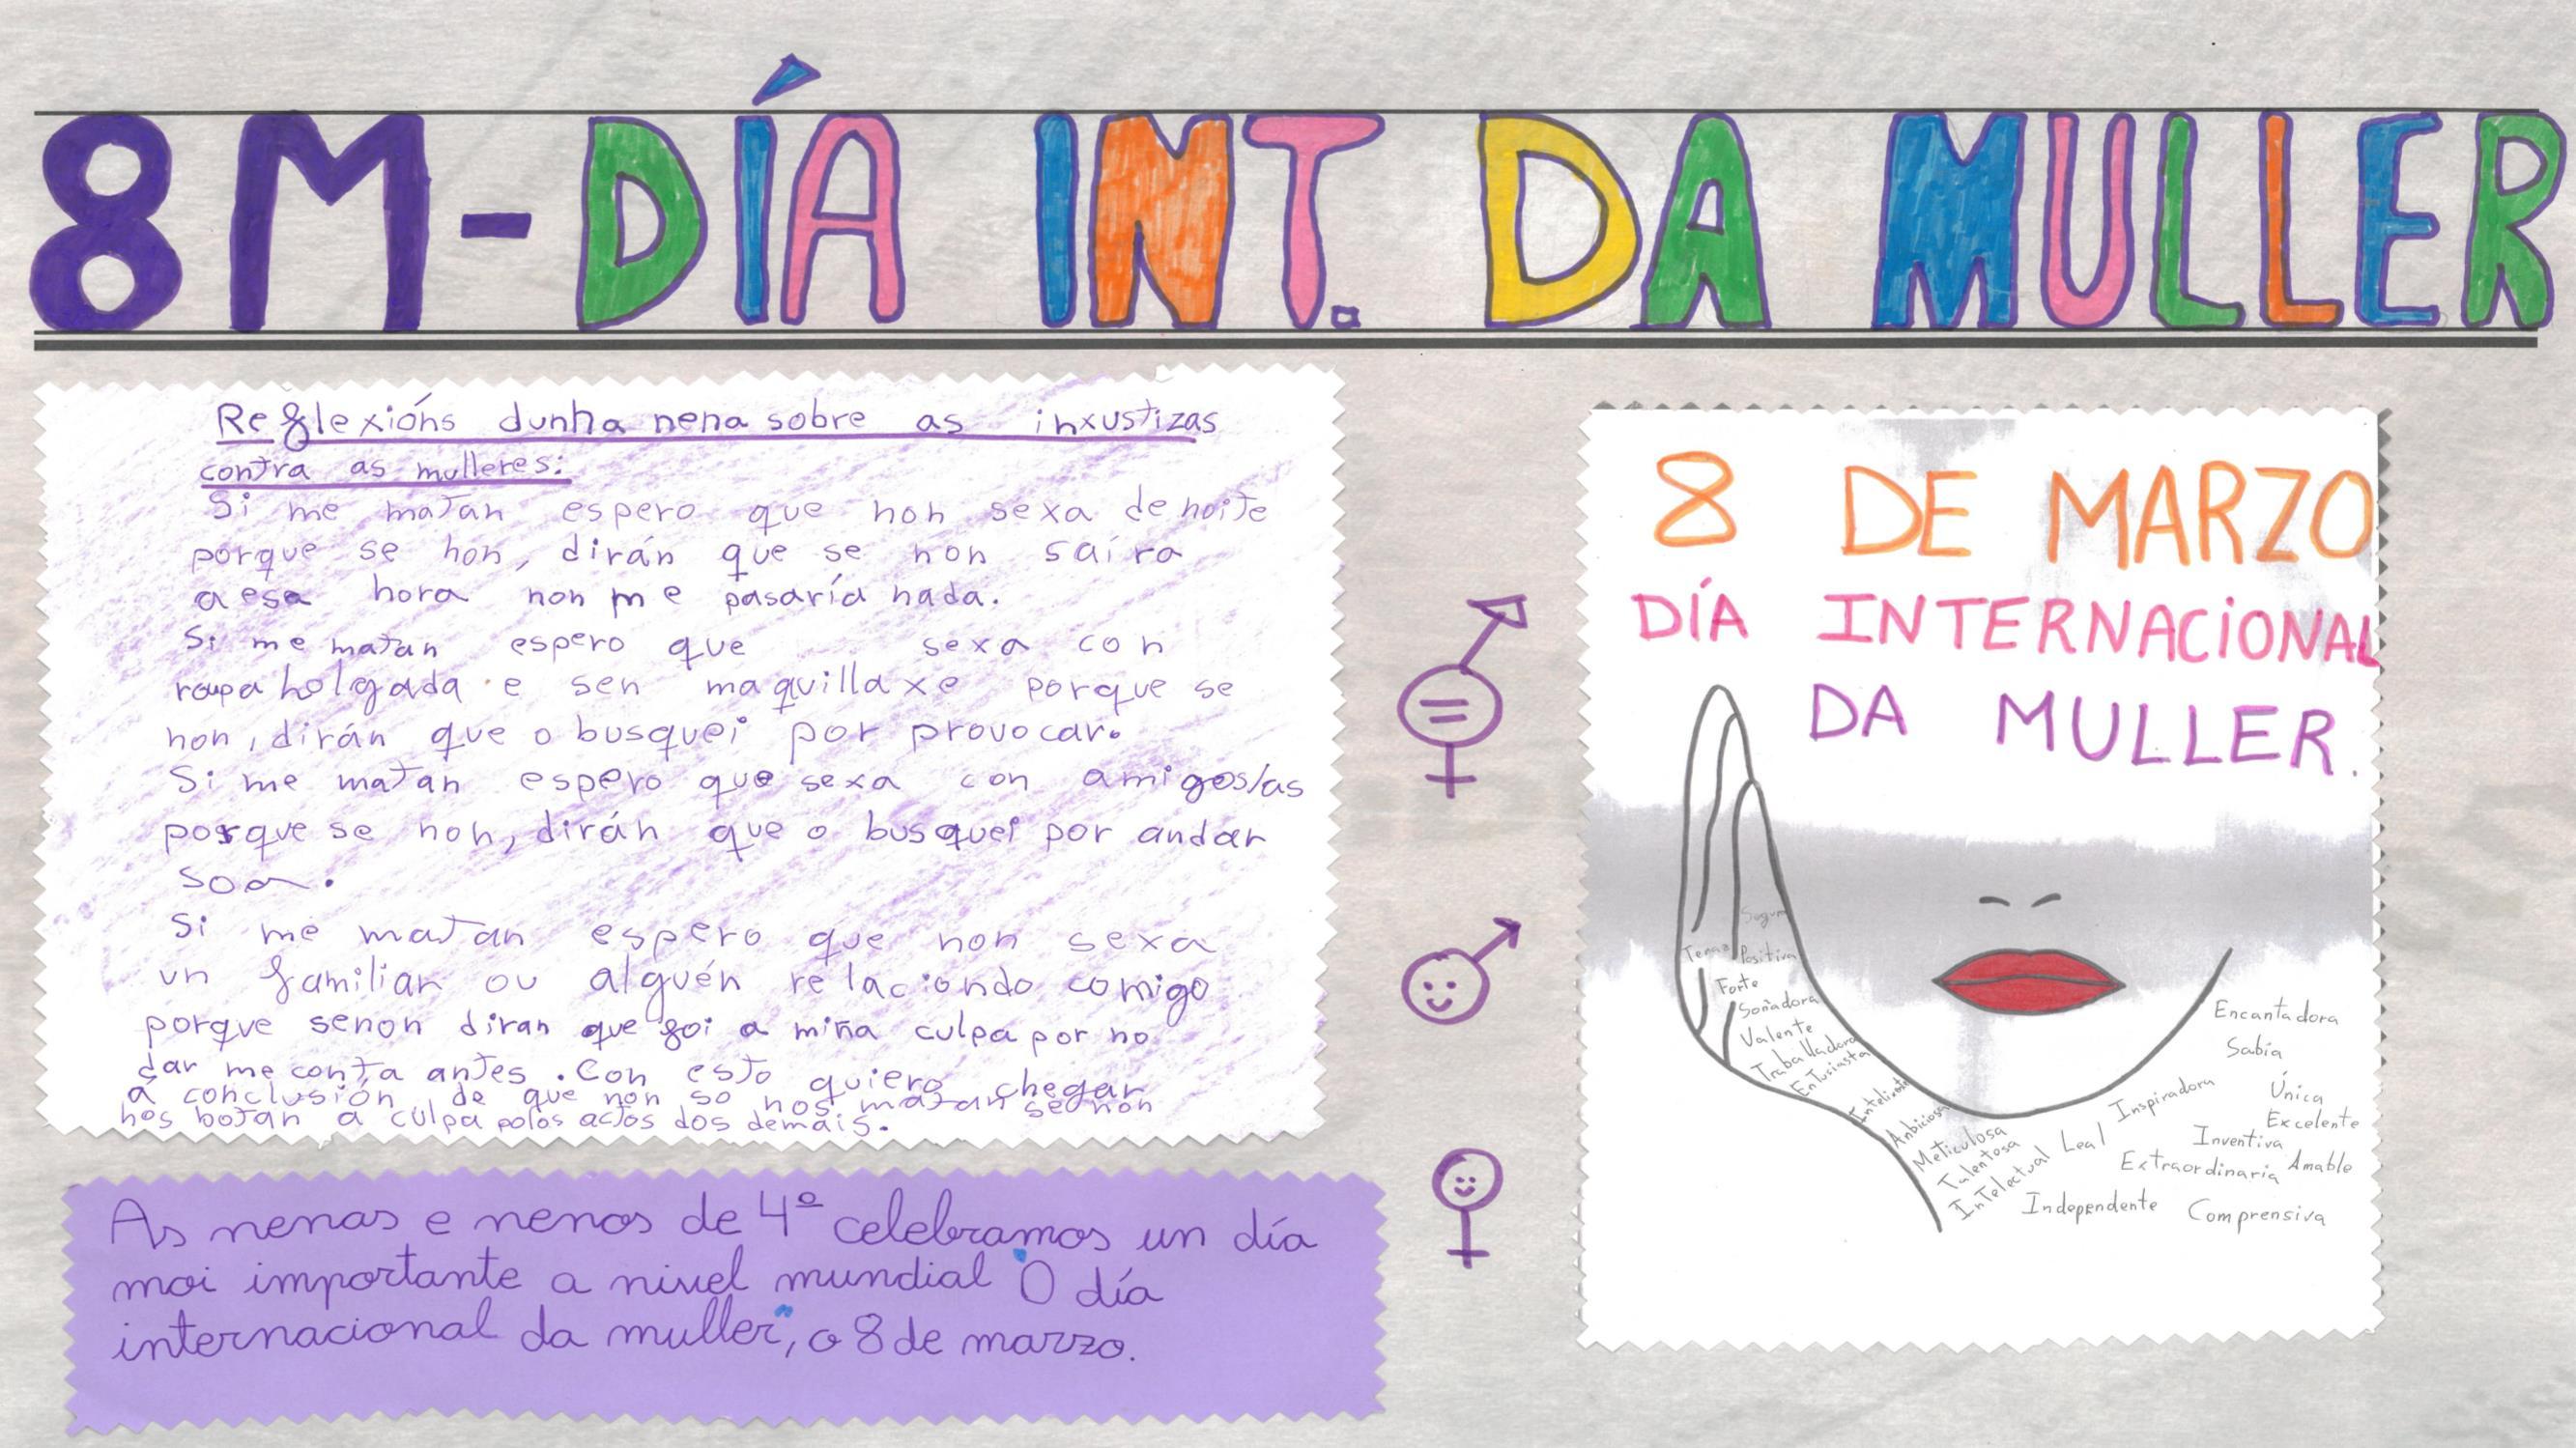 8M-DÍA INT. DA MULLER
Reflexións dunha nena sobre as inxustizas
contra as mulleres:
Si me matan espero que non sexa de noite
porque se non, dirán que se non saíra
a esa hora non me pasaría nada.
Si me matan espero que sexa con
roupa holgada e sen maquillaxe porque se
non, dirán que o busquei por provocar.
Si me matan espero que sexa con amigos/as
porque se non, dirán que o busquei por andar
soa.
Si me matan espero que non sexa
un familiar ou alguén relaciondo comigo
porque senon diran que foi a miña culpa por no
dar me conta antes. Con esto quiero chegar
á conclusión de que non so nos matan se non
nos botan a culpa polos actos dos demais.
As nenas e nenos de 4º celebramos un día
moi importante a nivel mundial "O día
internacional da muller", o 8 de marzo.
8 DE MARZO
DÍA INTERNACIONAL
DA MULLER.
Positiva
Forte
Soñadora
Valente
Traballadora
Entusiasta
Anbiciosa
Meticulosa
Talentosa
Intelectual
Leal
Inspiradora
Encantadora
Sabia
Única
Excelente
Inventiva
Amable
Extraordinaria
Independente
Comprensiva